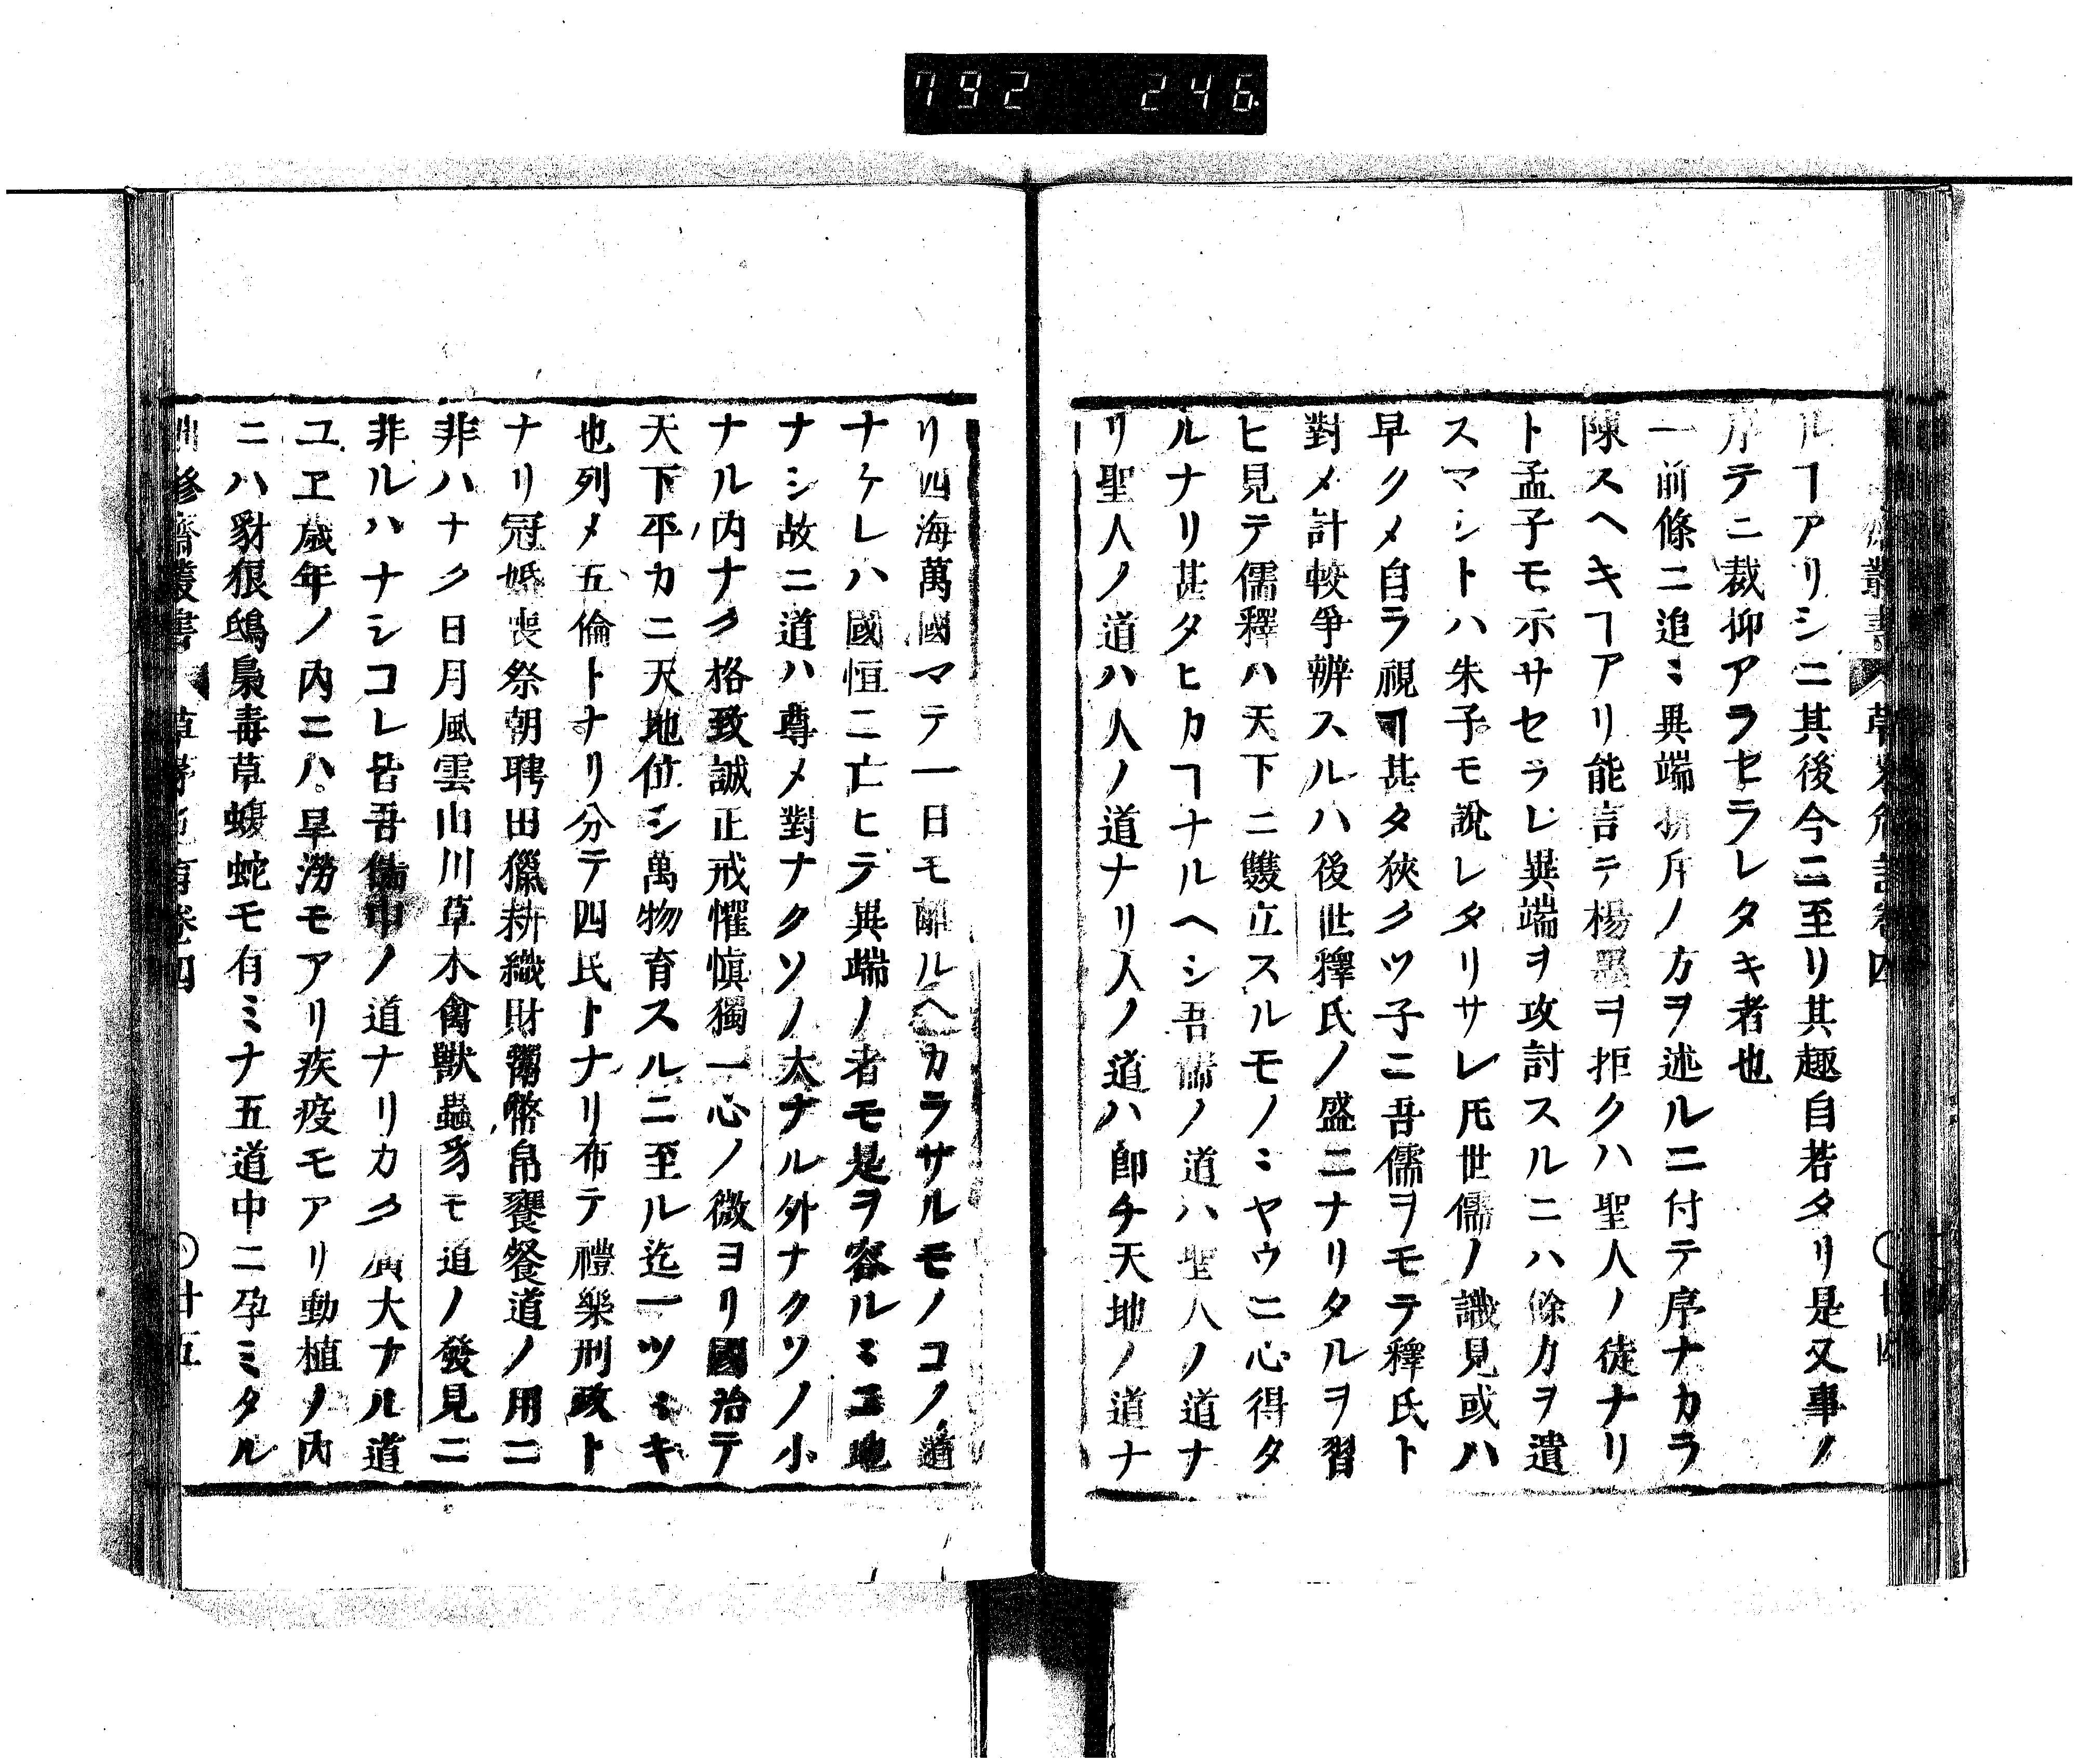 792 246
叢書 草茅危言卷四 ○廿四
ルヿアリシニ其後今ニ至リ其趣自若タリ是又事ノ
序テニ裁抑アラセラレタキ者也
一前條ニ追ミ異端擯斥ノ方ヲ述ルニ付テ序ナカラ
陳スヘキヿアリ能言テ楊墨ヲ拒クハ聖人ノ徒ナリ
ト孟子モ示サセラレ異端ヲ攻討スルニハ餘力ヲ遺
スマシトハ朱子モ說レタリサレ𪜈世儒ノ識見或ハ
早クメ自ラ視ヿ甚タ狹クツ子ニ吾儒ヲモテ釋氏ト
對メ計較爭辨スルハ後世釋氏ノ盛ニナリタルヲ習
ヒ見テ儒釋ハ天下ニ雙立スルモノミヤウニ心得タ
ルナリ甚タヒカヿナルヘシ吾儒ノ道ハ聖人ノ道ナ
リ聖人ノ道ハ人ノ道ナリ人ノ道ハ卽チ天地ノ道ナ
リ四海萬國マテ一日モ離ルヘカラサルモノコノ道
ナケレハ國恒ニ亡ヒテ異端ノ者モ是ヲ容ルミニ地
ナシ故ニ道ハ尊メ對ナクソノ大ナル外ナクソノ小
ナル内ナク格致誠正戒懼愼獨一心ノ微ヨリ國治テ
天下平カニ天地位シ萬物育スルニ至ル迄一ツミキ
也列メ五倫トナリ分テ四民トナリ布テ禮樂刑政ト
ナリ冠婚喪祭朝聘田獵耕織財貨幣帛饔餐道ノ用ニ
非ハナク日月風雲山川草木禽獸蟲豸モ道ノ發見ニ
非ルハナシコレ皆吾儒中ノ道ナリカク廣大ナル道
ユヱ歲年ノ内ニハ旱澇モアリ疾疫モアリ動植ノ内
ニハ豺狼鴟梟毒草蝮蛇モ有ミナ五道中ニ孕ミタル
修齋叢書 草茅危言卷四 ○廿五